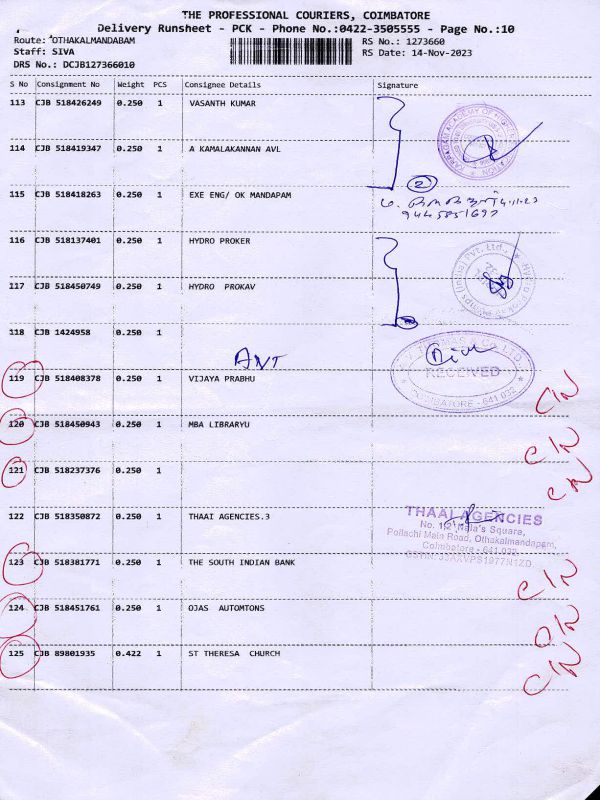 THE PROFESSIONAL COURIERS, COIMBATORE
Delivery Runsheet - PCK - Phone No.:0422-3505555 - Page No.:10
Route: OTHAKALMANDABAM
RS No.: 1273660
Staff: SIVA
RS Date: 14-Nov-2023
DRS No.: DCJB127366010
S No Consignment No Weight PCS Consignee Details Signature
113 CJB 518426249 0.250 1 VASANTH KUMAR
114 CJB 518419347 0.250 1 A KAMALAKANNAN AVL
2
115 CJB 518418263 0.250 1 EXE ENG/ OK MANDAPAM
9445851697
116 CJB 518137401 0.250 1 HYDRO PROKER
117 CJB 518450749 0.250 1 HYDRO PROKAV
118 CJB 1424958 0.250 1
ANT
RECEIVED
COIMBATORE - 641 032
119 CJB 518408378 0.250 1 VIJAYA PRABHU
C/N
120 CJB 518450943 0.250 1 MBA LIBRARYU
C/N
121 CJB 518237376 0.250 1
C/N
122 CJB 518350872 0.250 1 THAAI AGENCIES.3
THAAI AGENCIES
No. 1/2 Nala's Square,
Pollachi Main Road, Othakalmandapam,
Coimbatore - 641 032
123 CJB 518381771 0.250 1 THE SOUTH INDIAN BANK
C/N
124 CJB 518451761 0.250 1 OJAS AUTOMTONS
O/N
125 CJB 89801935 0.422 1 ST THERESA CHURCH
C/N